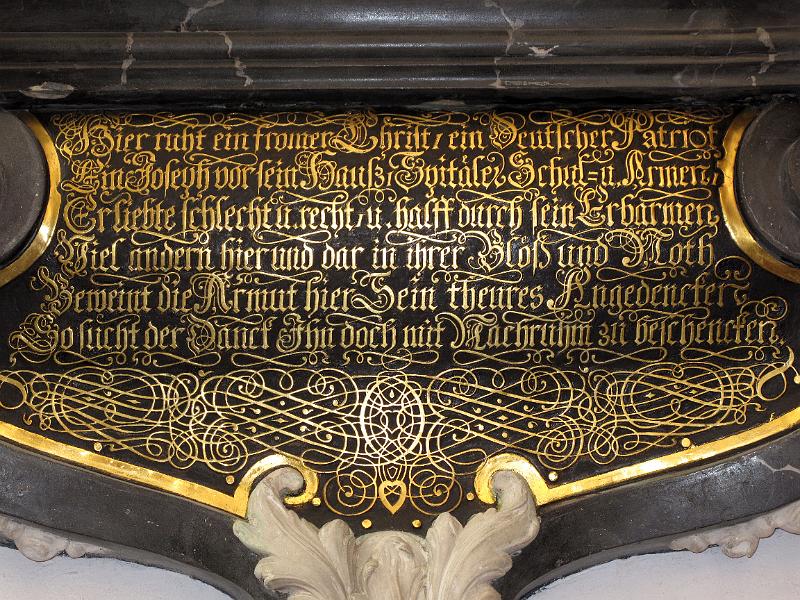 Hier ruht ein fromer Christ, ein Deutscher Patriot
Ein Joseph vor sein Hauß, Spitäler Schul= u. Armen,
Er liebte schlecht u. recht, u. halff durch sein Erbarmen,
Viel andern hier und dar in ihrer Blöß und Noth
Beweint die Armut hier Sein theures Angedencken,
So sucht der Danck Ihn doch mit Nachruhm zu beschencken.